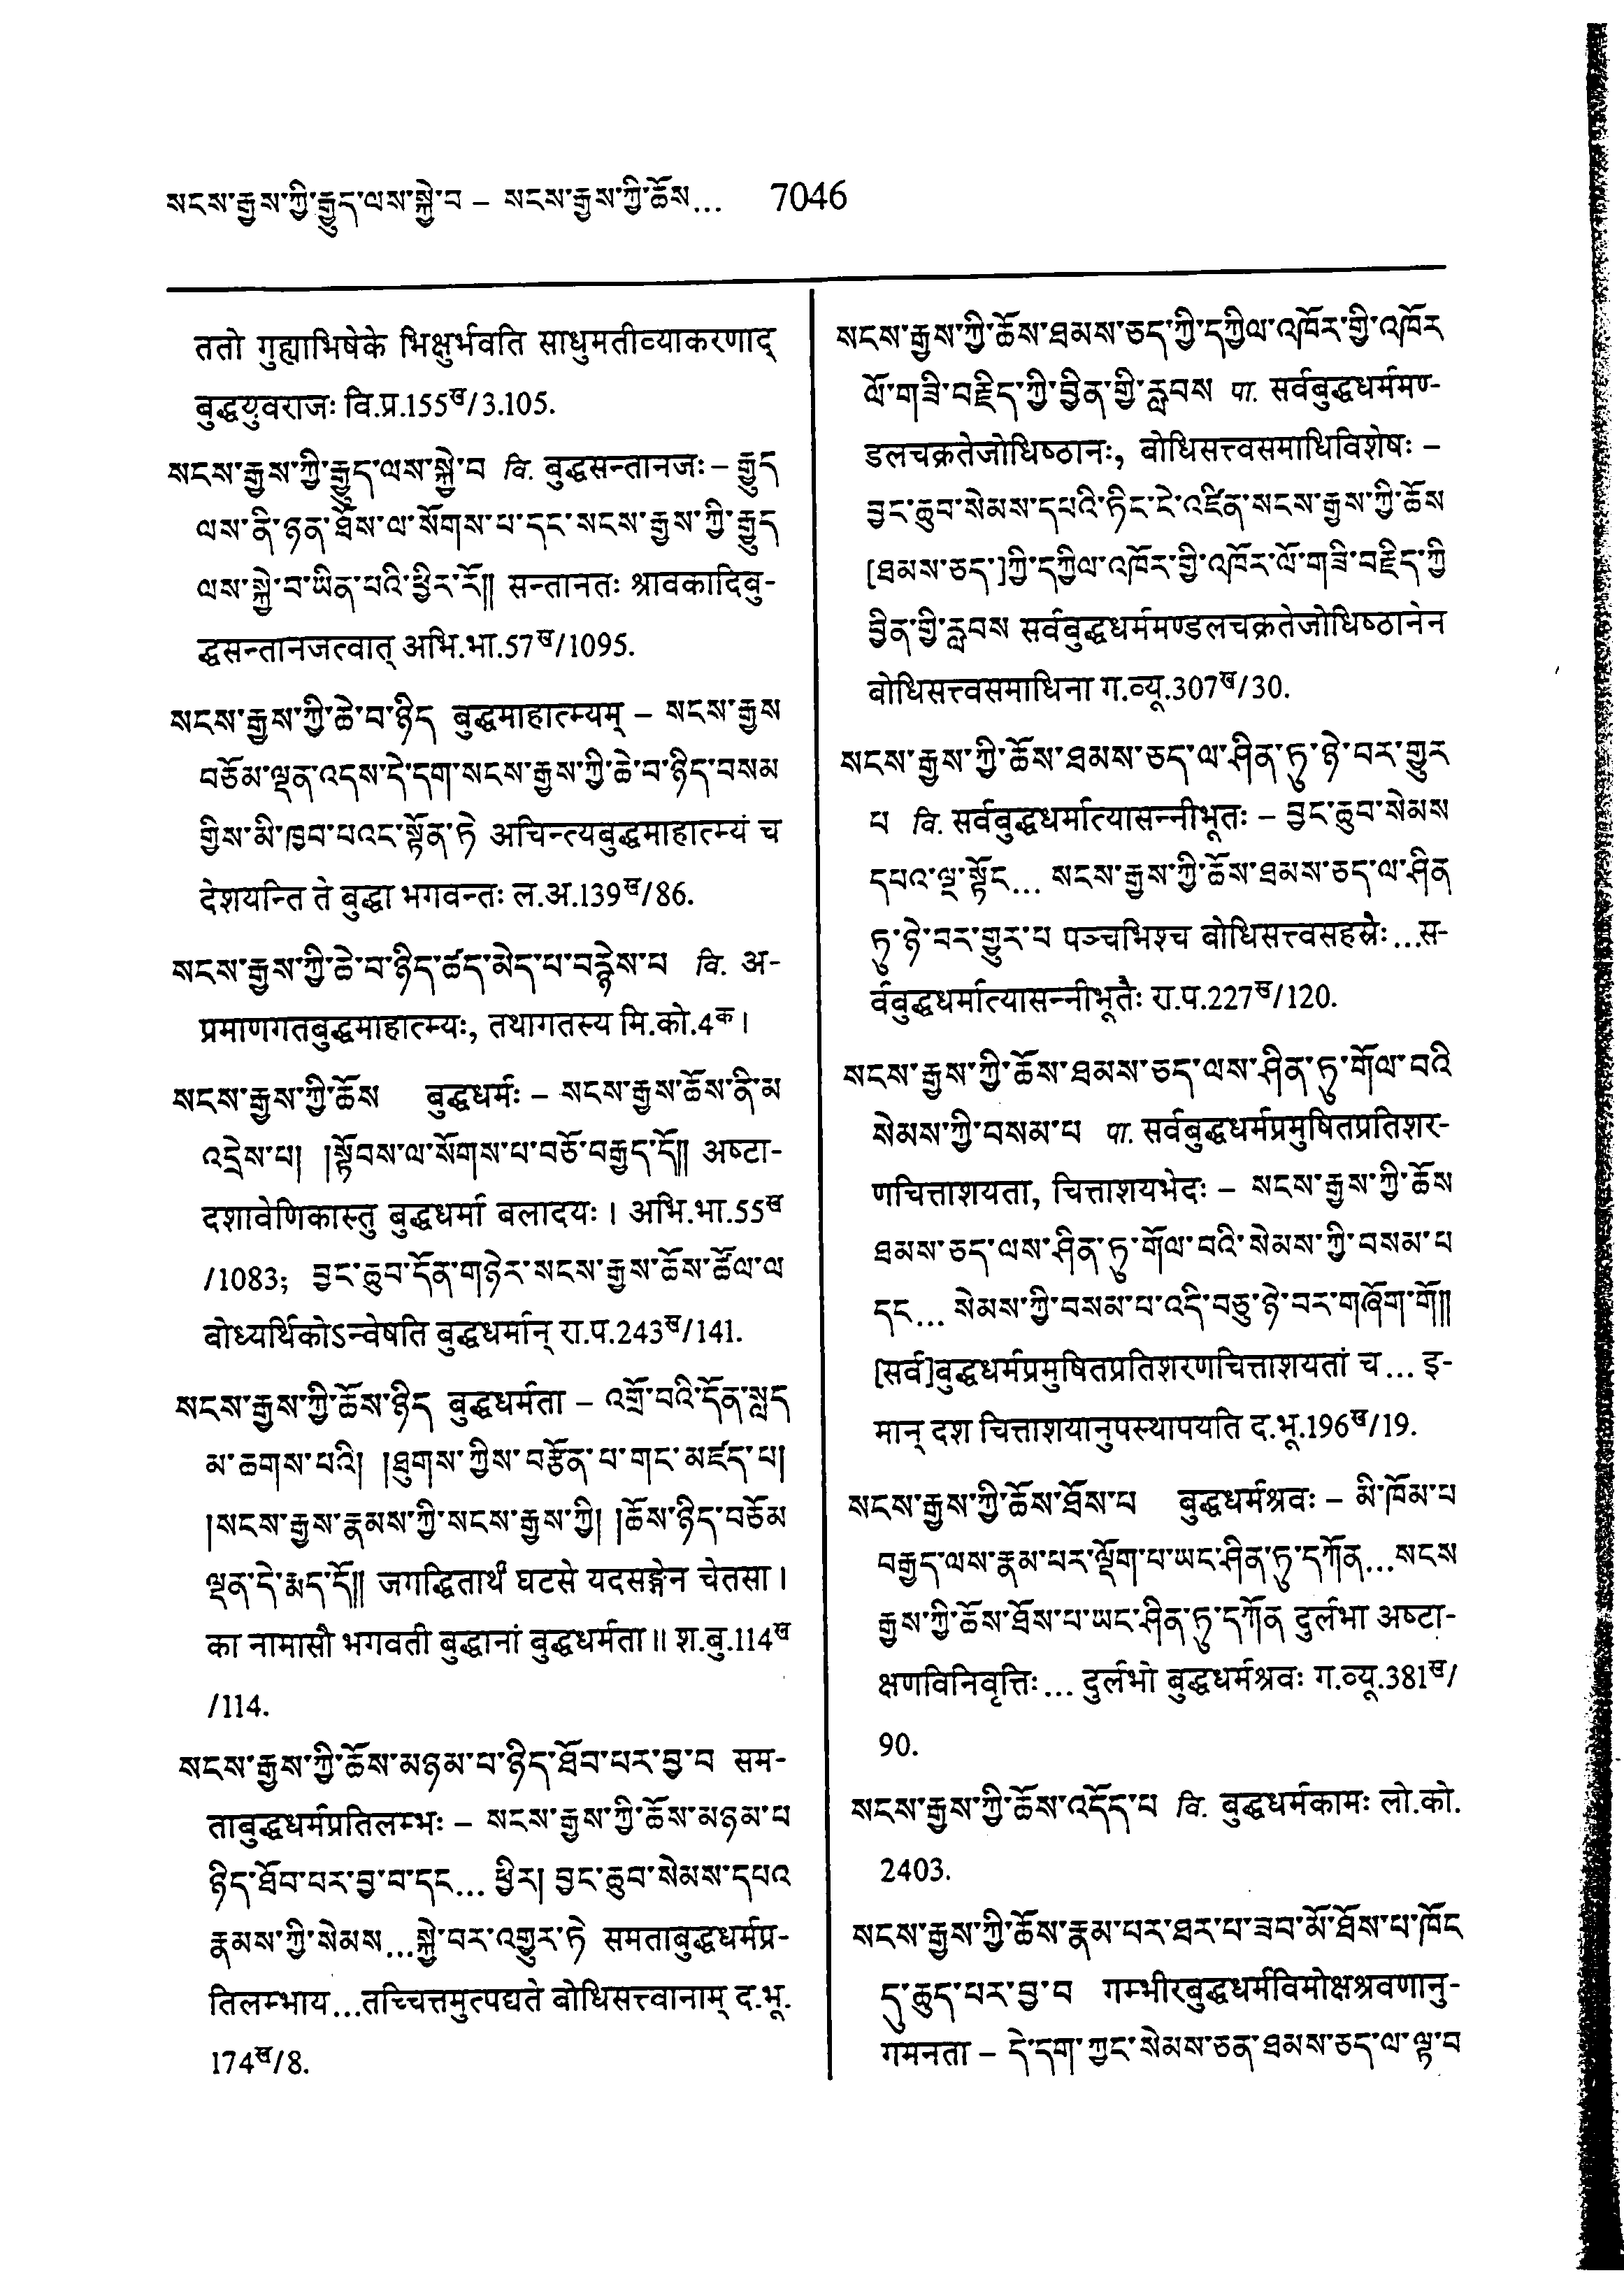 སངས་རྒྱས་ཀྱི་རྒྱུད་ལས་སྐྱེ་བ – སངས་རྒྱས་ཀྱི་ཆོས... 7046
ततो गुह्याभिषेके भिक्षुर्भवति साधुमतीव्याकरणाद्
बुद्धयुवराजः वि.प्र.155ख/3.105.
སངས་རྒྱས་ཀྱི་རྒྱུད་ལས་སྐྱེ་བ वि. बुद्धसन्तानजः – རྒྱུད
ལས་ནི་ཉན་ཐོས་ལ་སོགས་པ་དང་སངས་རྒྱས་ཀྱི་རྒྱུད
ལས་སྐྱེ་བ་ཡིན་པའི་ཕྱིར་རོ།། सन्तानतः श्रावकादिबु-
द्धसन्तानजत्वात् अभि.भा.57ख/1095.
སངས་རྒྱས་ཀྱི་ཆེ་བ་ཉིད बुद्धमाहात्म्यम् – སངས་རྒྱས
བཅོམ་ལྡན་འདས་དེ་དག་སངས་རྒྱས་ཀྱི་ཆེ་བ་ཉིད་བསམ
གྱིས་མི་ཁྱབ་པའང་སྟོན་ཏེ अचिन्त्यबुद्धमाहात्म्यं च
देशयन्ति ते बुद्धा भगवन्तः ल.अ.139ख/86.
སངས་རྒྱས་ཀྱི་ཆེ་བ་ཉིད་ཚད་མེད་པ་བརྙེས་པ वि. अ-
प्रमाणगतबुद्धमाहात्म्यः, तथागतस्य मि.को.4क।
སངས་རྒྱས་ཀྱི་ཆོས बुद्धधर्मः – སངས་རྒྱས་ཆོས་ནི་མ
འདྲེས་པ། །སྟོབས་ལ་སོགས་པ་བཅོ་བརྒྱད་དོ།། अष्टा-
दशावेणिकास्तु बुद्धधर्मा बलादयः। अभि.भा.55ख
/1083; བྱང་ཆུབ་དོན་གཉེར་སངས་རྒྱས་ཆོས་ཚོལ་ལ
बोध्यर्थिकोऽन्वेषति बुद्धधर्मान् रा.प.243ख/141.
སངས་རྒྱས་ཀྱི་ཆོས་ཉིད बुद्धधर्मता – འགྲོ་བའི་དོན་སླད
མ་ཆགས་པའི། །ཐུགས་ཀྱིས་བརྩོན་པ་གང་མཛད་པ།
།སངས་རྒྱས་རྣམས་ཀྱི་སངས་རྒྱས་ཀྱི། །ཆོས་ཉིད་བཅོམ
ལྡན་དེ་རྨད་དོ།། जगद्धितार्थं घटसे यदसङ्गेन चेतसा।
का नामासौ भगवती बुद्धानां बुद्धधर्मता॥ श.बु.114ख
/114.
སངས་རྒྱས་ཀྱི་ཆོས་མཉམ་པ་ཉིད་ཐོབ་པར་བྱ་བ सम-
ताबुद्धधर्मप्रतिलम्भः – སངས་རྒྱས་ཀྱི་ཆོས་མཉམ་པ
ཉིད་ཐོབ་པར་བྱ་བ་དང... ཕྱིར། བྱང་ཆུབ་སེམས་དཔའ
རྣམས་ཀྱི་སེམས...སྐྱེ་བར་འགྱུར་ཏེ समताबुद्धधर्मप्र-
तिलम्भाय...तच्चित्तमुत्पद्यते बोधिसत्त्वानाम् द.भू.
174ख/8.
སངས་རྒྱས་ཀྱི་ཆོས་ཐམས་ཅད་ཀྱི་དཀྱིལ་འཁོར་གྱི་འཁོར
ལོ་གཟི་བརྗིད་ཀྱི་བྱིན་གྱི་རླབས पा. सर्वबुद्धधर्ममण-
डलचक्रतेजोधिष्ठानः, बोधिसत्त्वसमाधिविशेषः –
བྱང་ཆུབ་སེམས་དཔའི་ཏིང་ངེ་འཛིན་སངས་རྒྱས་ཀྱི་ཆོས
[ཐམས་ཅད་]ཀྱི་དཀྱིལ་འཁོར་གྱི་འཁོར་ལོ་གཟི་བརྗིད་ཀྱི
བྱིན་གྱི་རླབས सर्वबुद्धधर्ममण्डलचक्रतेजोधिष्ठानेन
बोधिसत्त्वसमाधिना ग.व्यू.307ख/30.
སངས་རྒྱས་ཀྱི་ཆོས་ཐམས་ཅད་ལ་ཤིན་ཏུ་ཉེ་བར་གྱུར
པ वि. सर्वबुद्धधर्मात्यासन्नीभूतः – བྱང་ཆུབ་སེམས
དཔའ་ལྔ་སྟོང... སངས་རྒྱས་ཀྱི་ཆོས་ཐམས་ཅད་ལ་ཤིན
ཏུ་ཉེ་བར་གྱུར་པ पञ्चभिश्च बोधिसत्त्वसहस्रैः...स-
र्वबुद्धधर्मात्यासन्नीभूतैः रा.प.227ख/120.
སངས་རྒྱས་ཀྱི་ཆོས་ཐམས་ཅད་ལས་ཤིན་ཏུ་གོལ་བའི
སེམས་ཀྱི་བསམ་པ पा. सर्वबुद्धधर्मप्रमुषितप्रतिशर-
णचित्ताशयता, चित्ताशयभेदः – སངས་རྒྱས་ཀྱི་ཆོས
ཐམས་ཅད་ལས་ཤིན་ཏུ་གོལ་བའི་སེམས་ཀྱི་བསམ་པ
དང... སེམས་ཀྱི་བསམ་པ་འདི་བཅུ་ཉེ་བར་གཞོག་གོ།།
[सर्व]बुद्धधर्मप्रमुषितप्रतिशरणचित्ताशयतां च... इ-
मान् दश चित्ताशयानुपस्थापयति द.भू.196ख/19.
སངས་རྒྱས་ཀྱི་ཆོས་ཐོས་པ बुद्धधर्मश्रवः – མི་ཁོམ་པ
བརྒྱད་ལས་རྣམ་པར་ལྡོག་པ་ཡང་ཤིན་ཏུ་དཀོན...སངས
རྒྱས་ཀྱི་ཆོས་ཐོས་པ་ཡང་ཤིན་ཏུ་དཀོན दुर्लभा अष्टा-
क्षणविनिवृत्तिः... दुर्लभो बुद्धधर्मश्रवः ग.व्यू.381ख/
90.
སངས་རྒྱས་ཀྱི་ཆོས་འདོད་པ वि. बुद्धधर्मकामः लो.को.
2403.
སངས་རྒྱས་ཀྱི་ཆོས་རྣམ་པར་ཐར་པ་ཟབ་མོ་ཐོས་པ་ཁོང
དུ་ཆུད་པར་བྱ་བ गम्भीरबुद्धधर्मविमोक्षश्रवणानु-
गमनता – དེ་དག་ཀྱང་སེམས་ཅན་ཐམས་ཅད་ལ་ལྟ་བ